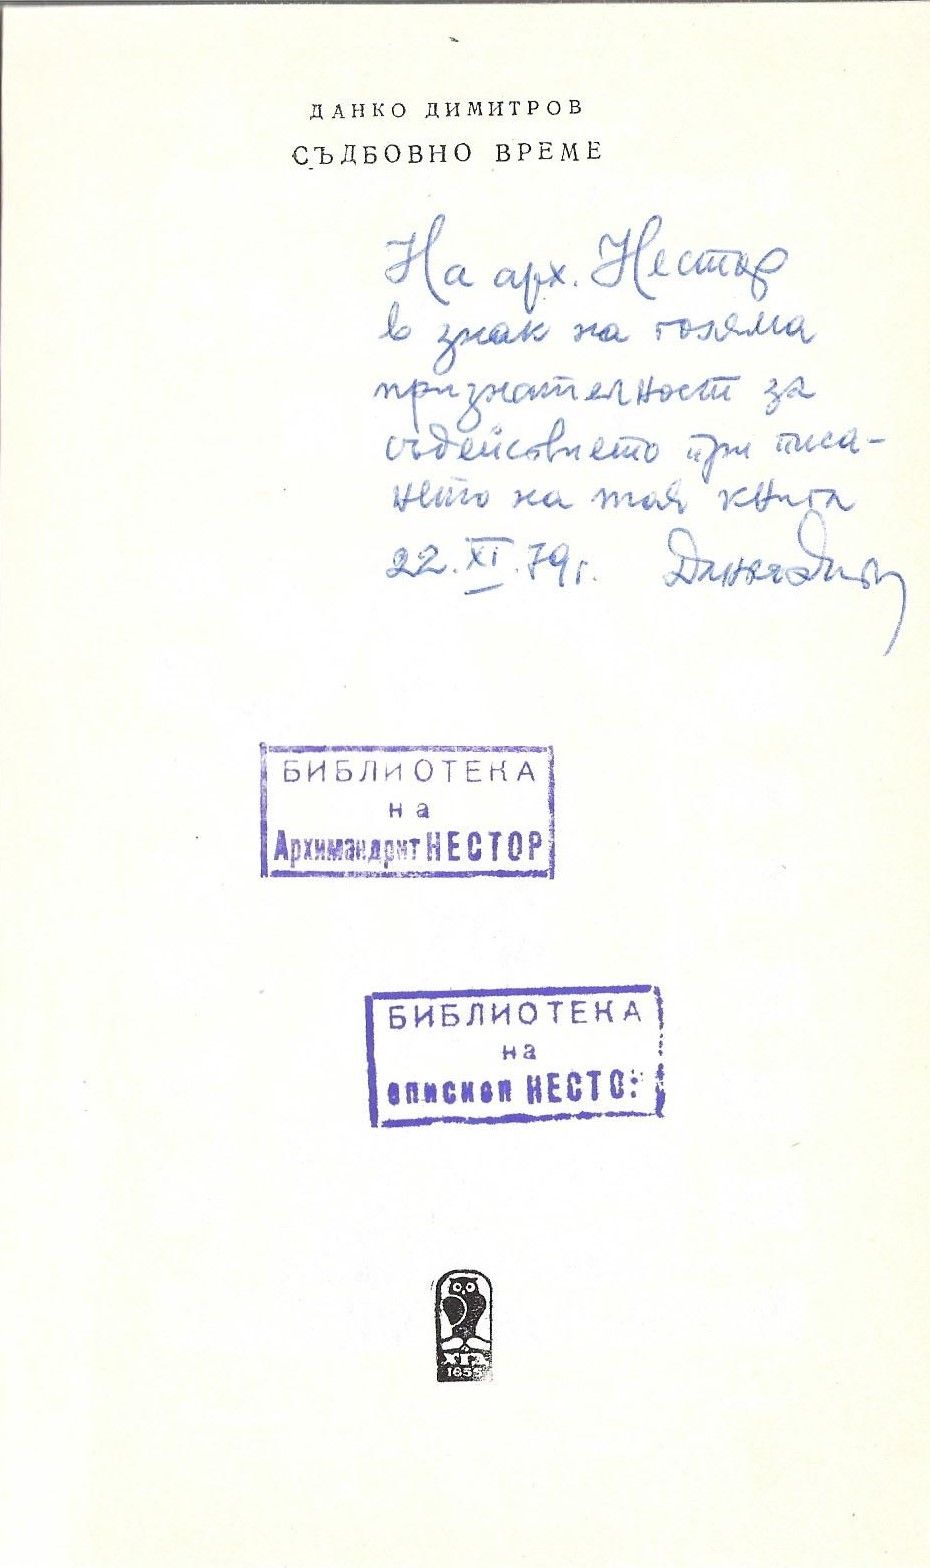 ДАНКО ДИМИТРОВ
СЪДБОВНО ВРЕМЕ
На арх. Нестор
в знак на голяма
признателност за
съдействието при писа-
нето на тая книга
22.XI.79г.
БИБЛИОТЕКА
на
Архимандрит НЕСТОР
БИБЛИОТЕКА
на
епископ НЕСТО
ХГД
1855